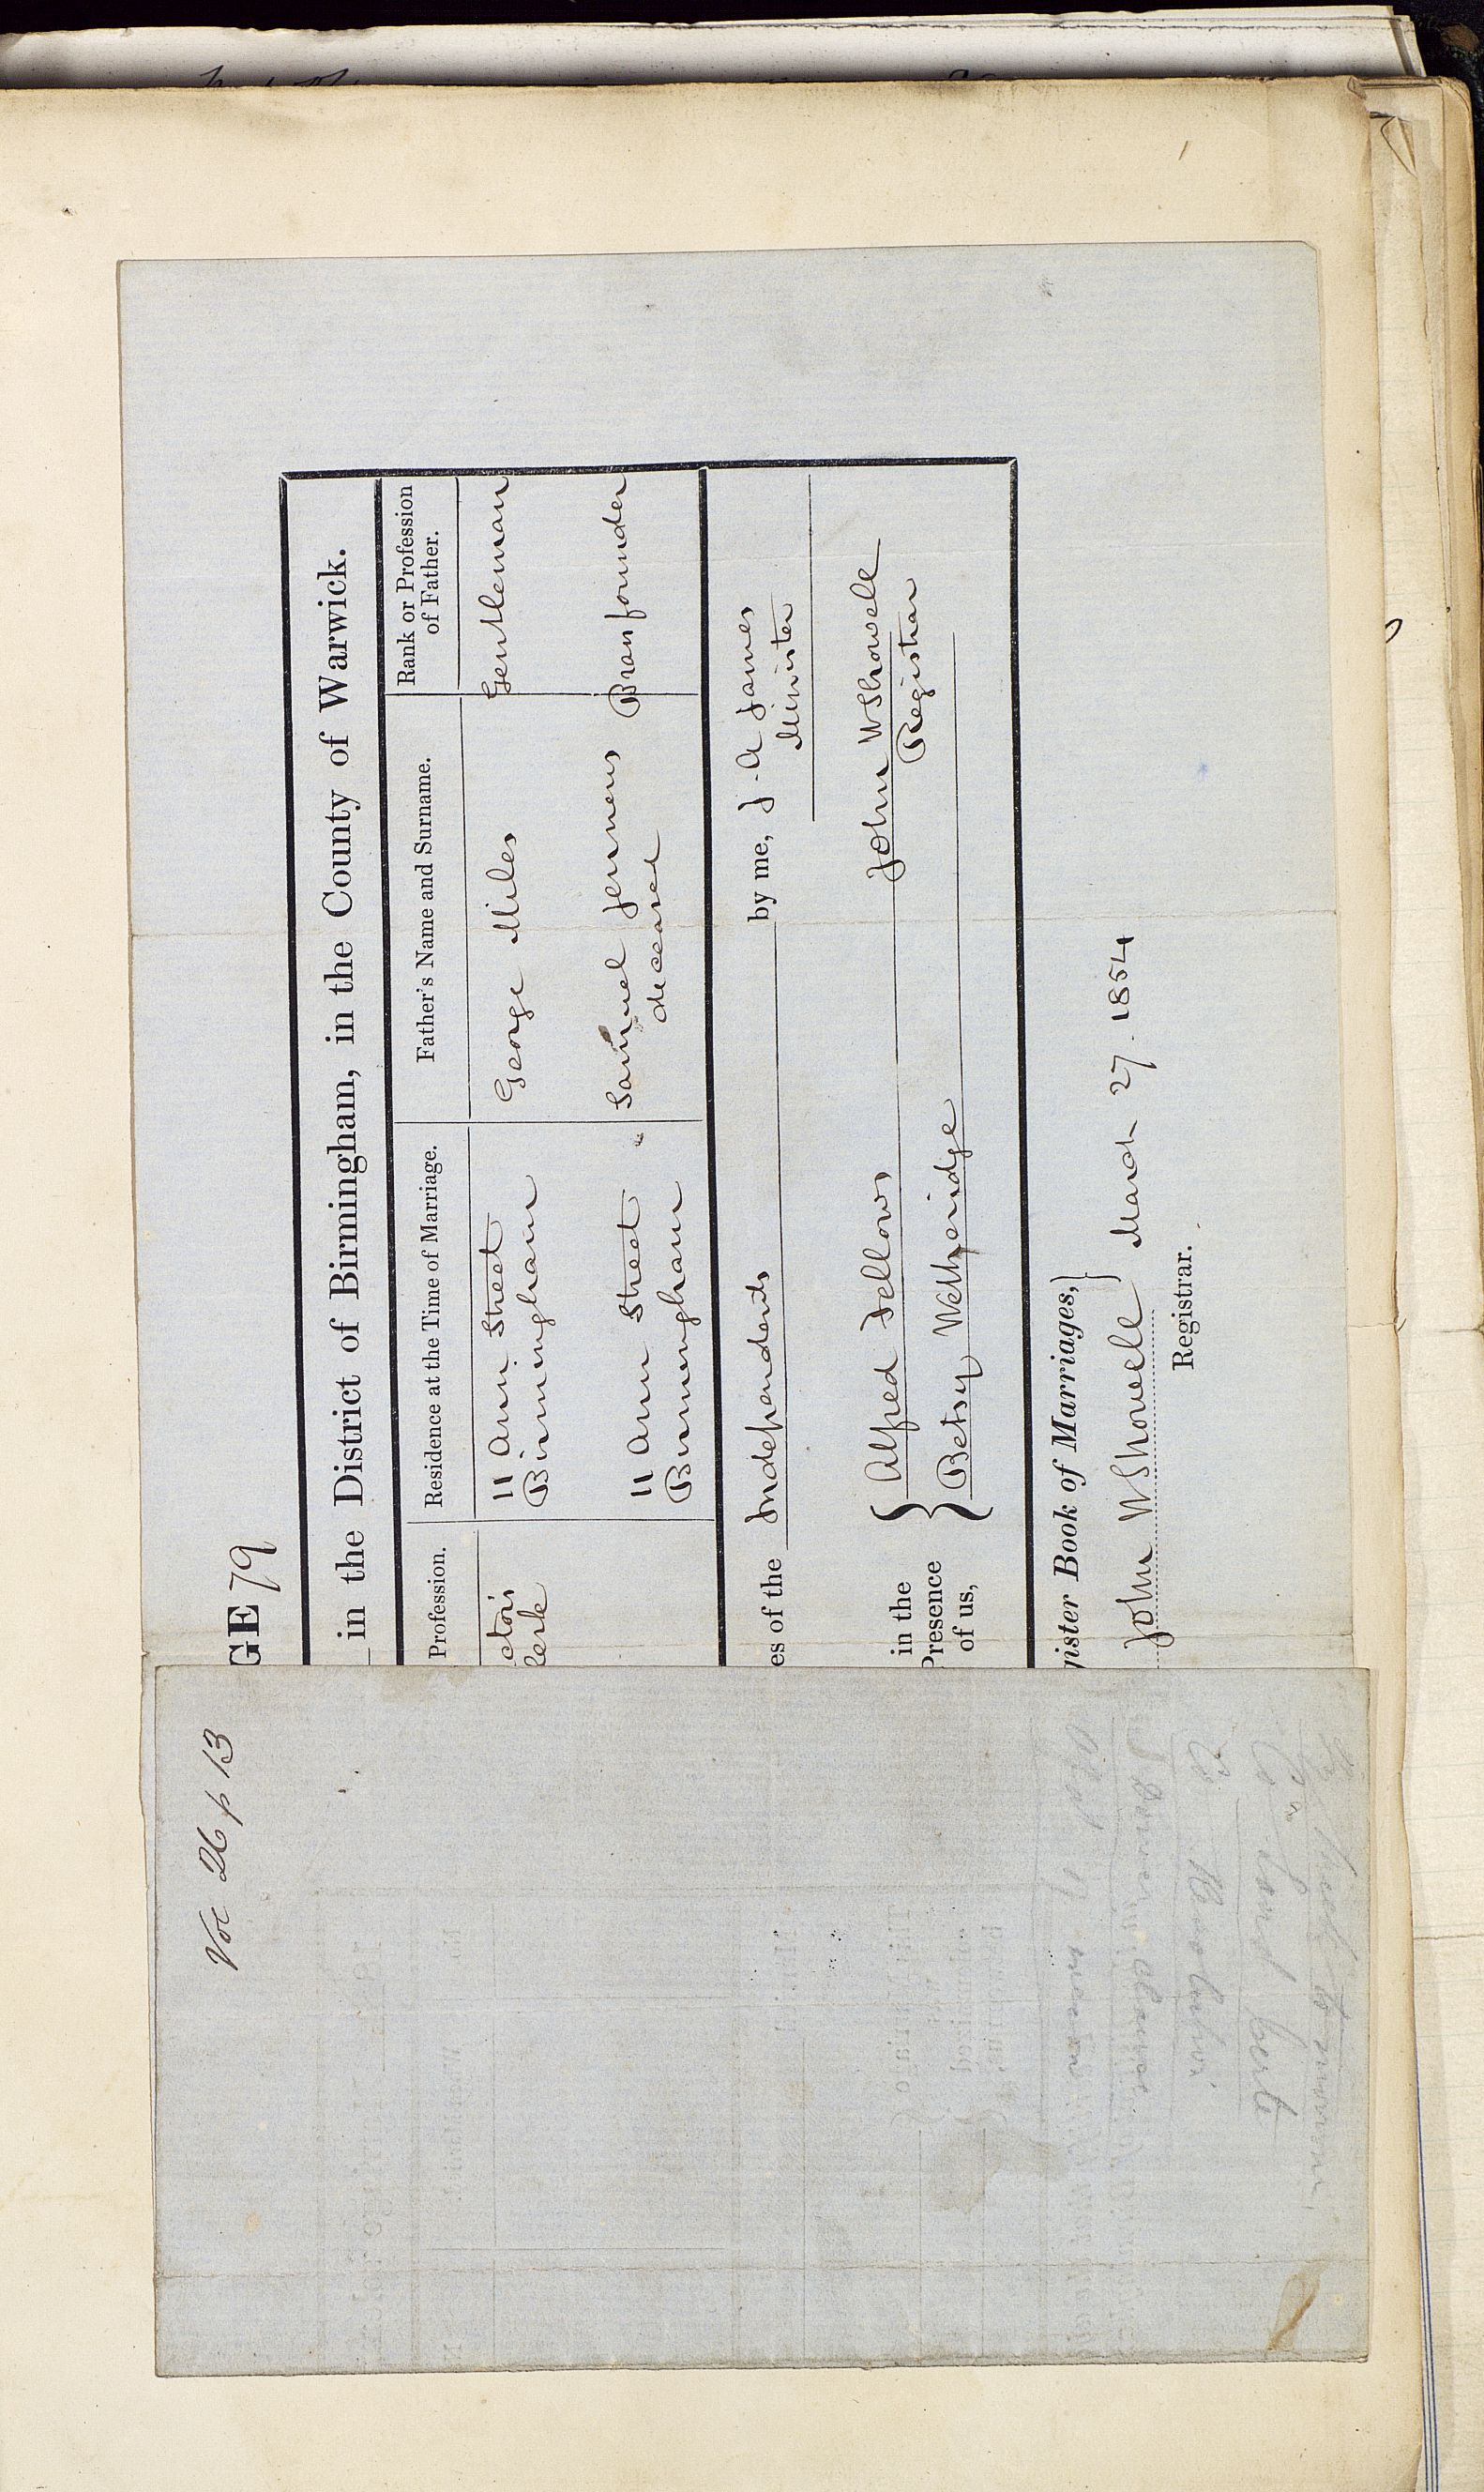 Vol 26 p 13
GE 79
in the District of Birmingham, in the County of Warwick.
Profession.
Residence at the Time of Marriage.
Father's Name and Surname.
Rank or Profession
of Father.
ctor's
lerk
11 Ann Street
Birmingham
George Miles
Gentleman
11 Ann Street
Birmingham
Samuel Jennens
deceased
Brassfounder
es of the Independents by me, J. A James
Minister
in the
Presence
of us,
Alfred Fellows
Betsy Wetheridge
John W Showell
Registrar
gister Book of Marriages,
John W Showell March 27. 1854
Registrar.